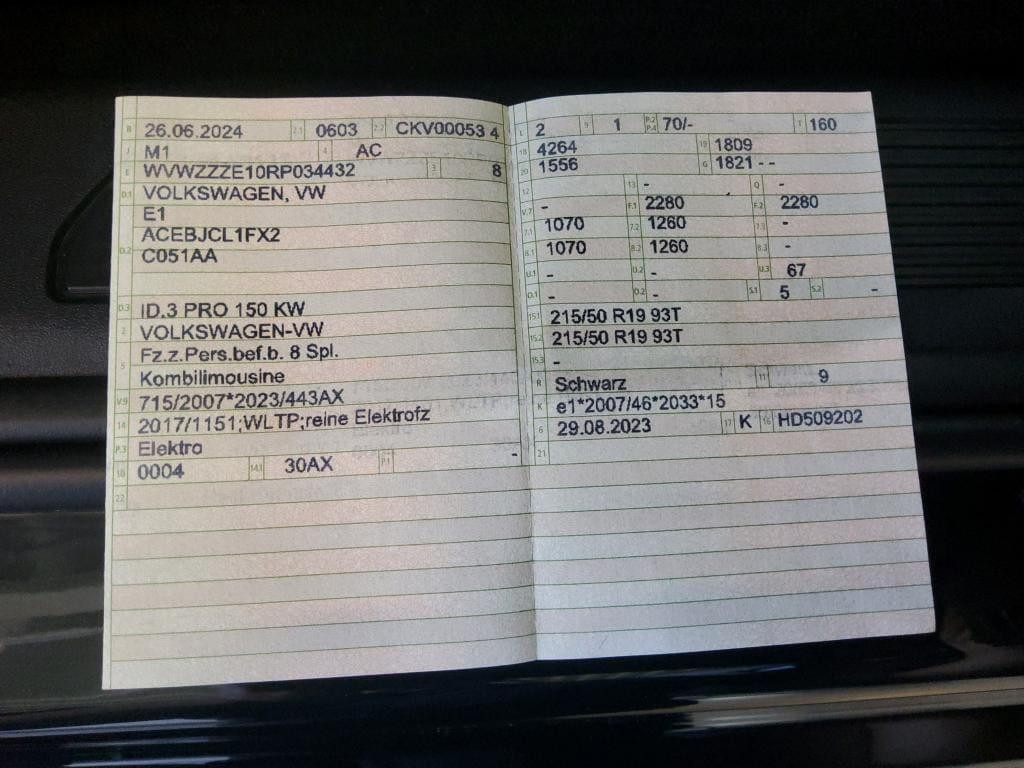 B 26.06.2024 2.1 0603 2.2 CKV00053 4
J M1 4 AC
E WVWZZZE10RP034432 3 8
D.1 VOLKSWAGEN, VW
E1
D.2 ACEBJCL1FX2
C051AA
D.3 ID.3 PRO 150 KW
2 VOLKSWAGEN-VW
5 Fz.z.Pers.bef.b. 8 Spl.
Kombilimousine
V.9 715/2007*2023/443AX
14 2017/1151;WLTP;reine Elektrofz
P.3 Elektro
10 0004 14.1 30AX P.1 -
22
L 2 9 1 P.2 P.4 70/- T 160
18 4264 19 1809
20 1556 G 1821 - -
12 13 - Q -
V.7 - F.1 2280 F.2 2280
7.1 1070 7.2 1260 7.3 -
8.1 1070 8.2 1260 8.3 -
U.1 - U.2 - U.3 67
O.1 - O.2 - S.1 5 S.2 -
15.1 215/50 R19 93T
15.2 215/50 R19 93T
15.3 -
R Schwarz 11 9
K e1*2007/46*2033*15
6 29.08.2023 17 K 16 HD509202
21